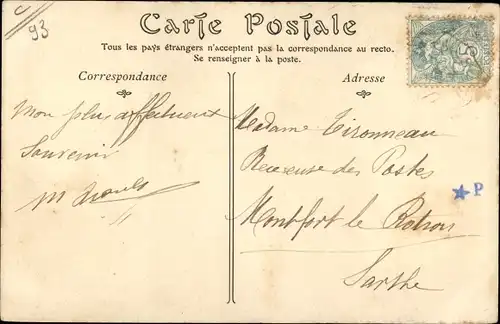 93
Carte Postale
Tous les pays étrangers n'acceptent pas la correspondance au recto.
Se renseigner à la poste.
Correspondance
Adresse
Mon plus affectueux
Souvenir
M
Madame Tironneau
Receveuse des Postes
Montfort le Rotrou
Sarthe
P